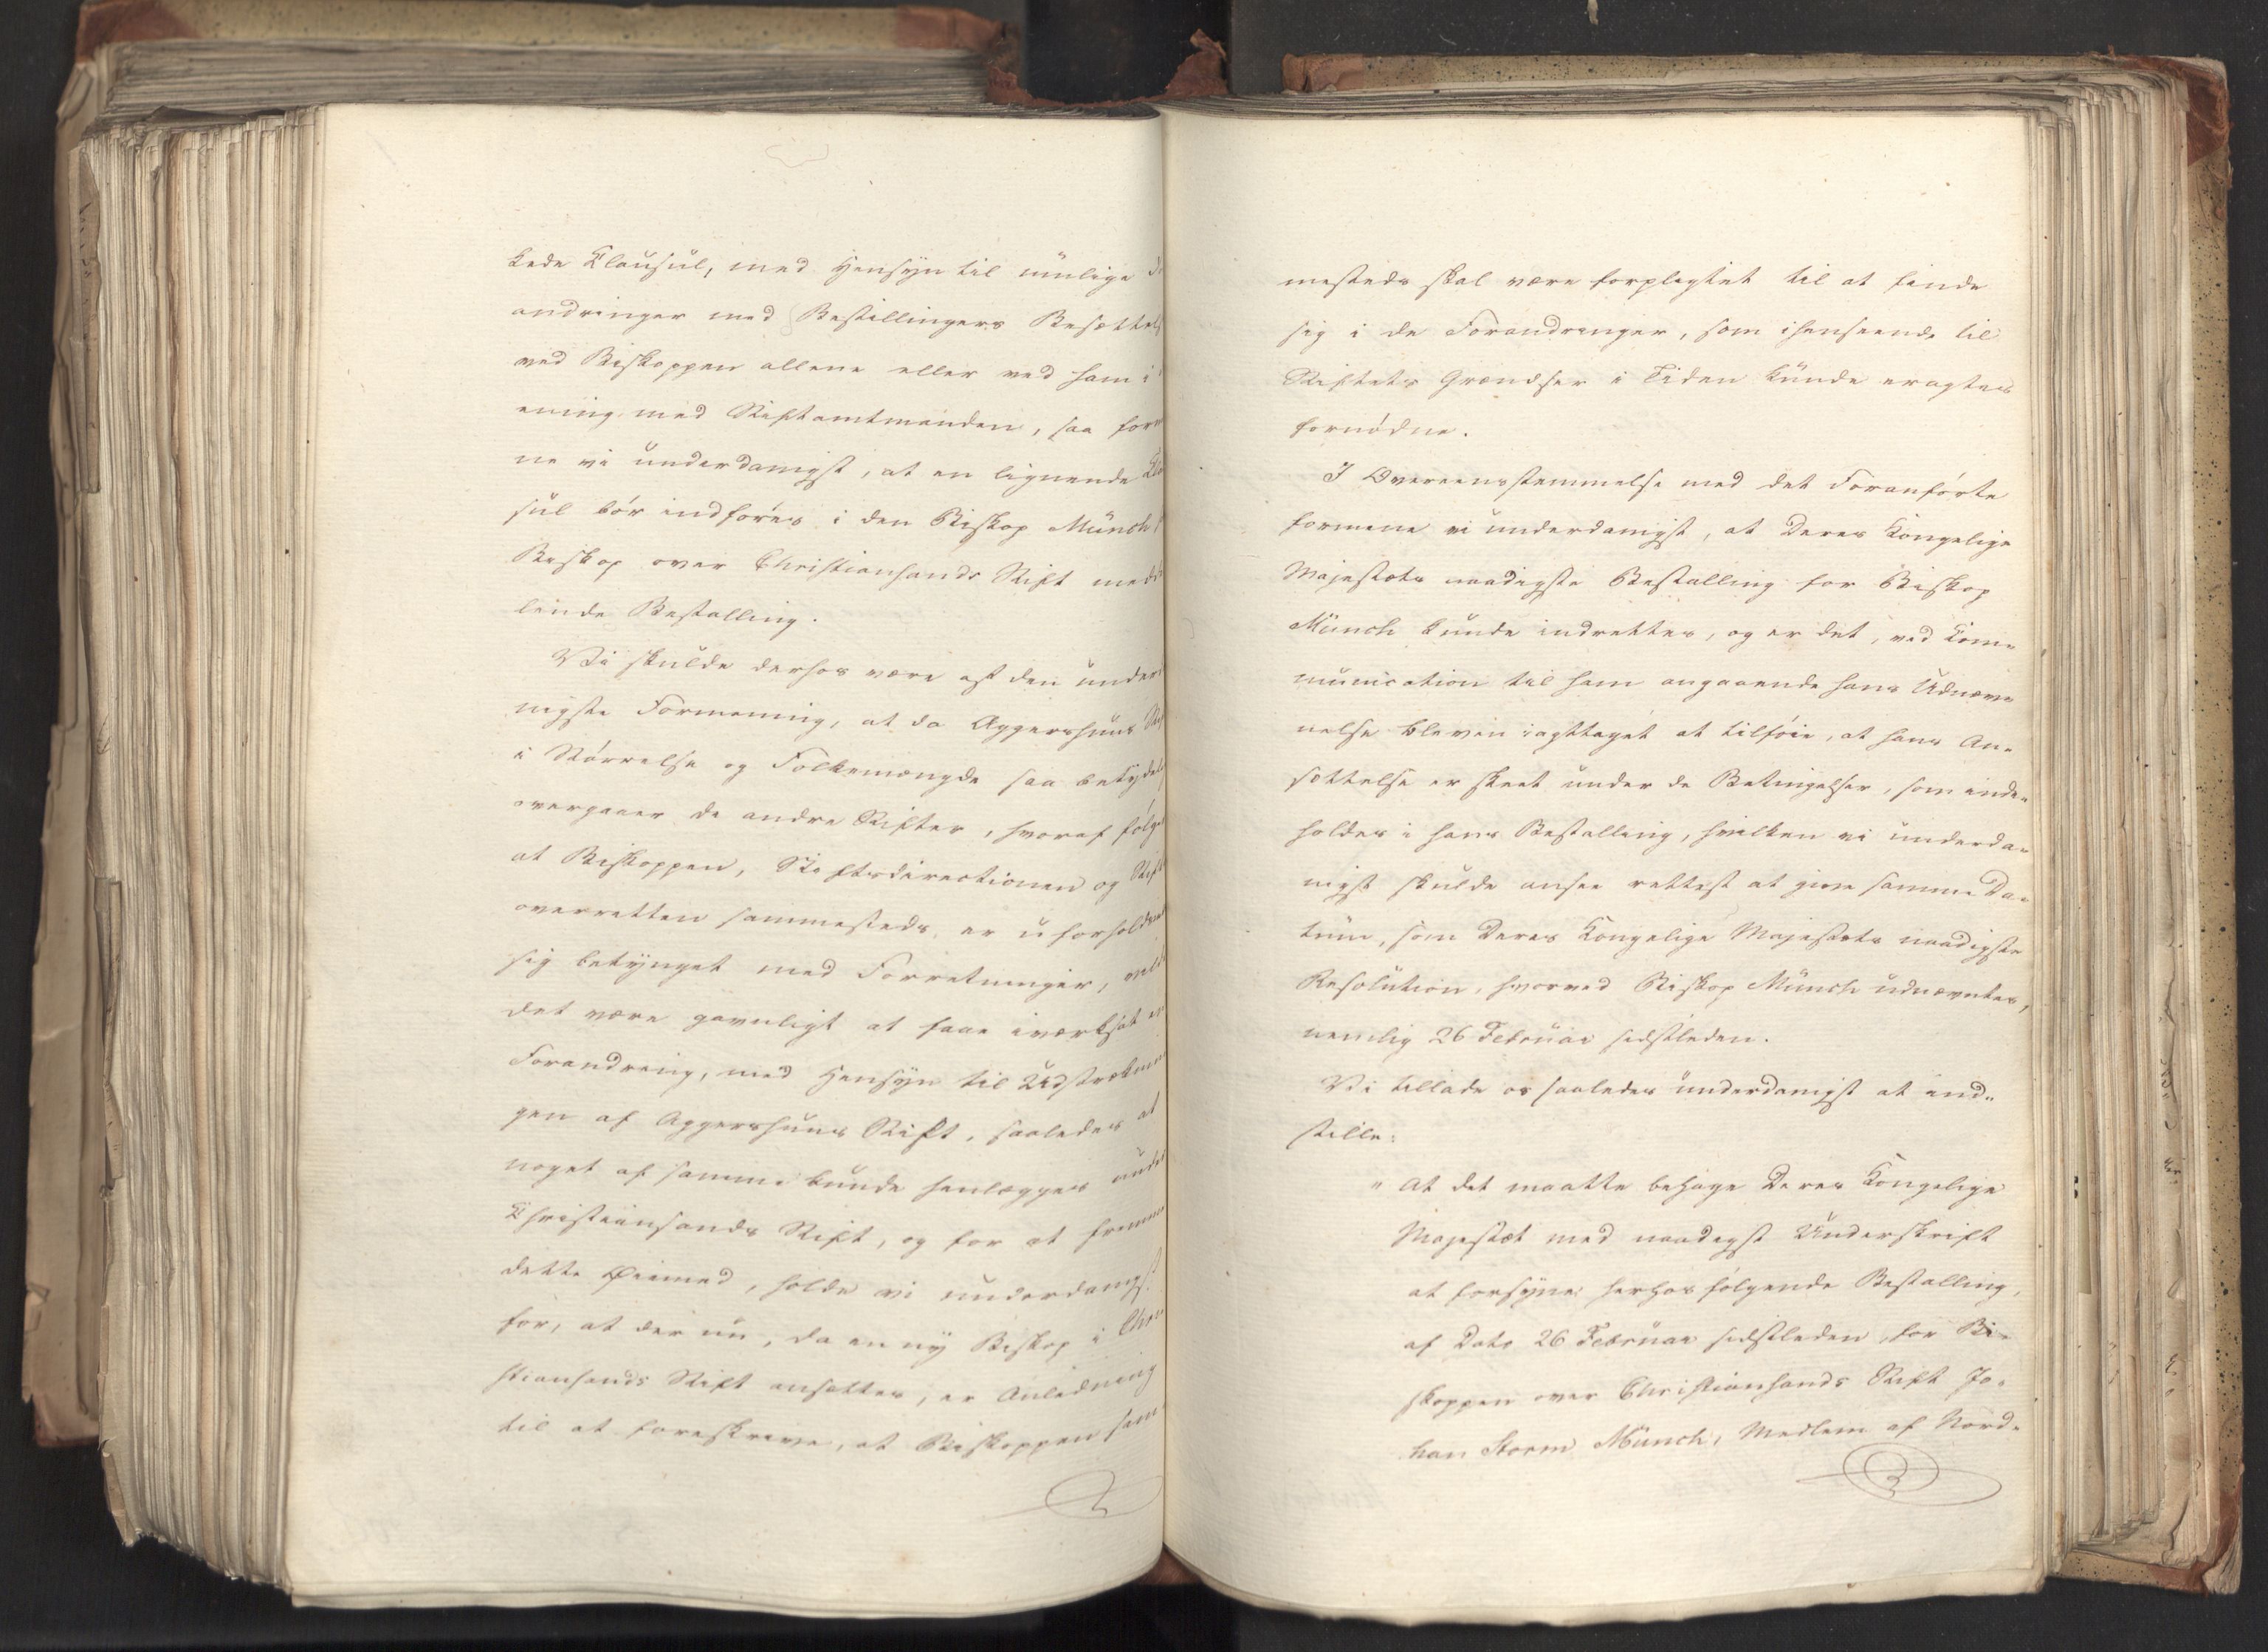 kede Clausul, med Hensyn til mulige
andringer med Bestillingers Besættels
ved Biskoppen allene eller ved ham i
ening med Stiftamtmanden, saa form
ne vi underdanigst, at en lignende Cla
sul bør indføres i den Biskop Münch
Biskop over Christiansands Stift medde
lende Bestalling.
Vi skulde derhos være af den underd
nigste Formening, at da Aggershuus Stif
i Størrelse og Folkemængde saa betydel
overgaaer de andre Stifter, hvoraf følge
at Biskoppen, Stiftsdirectionen og Stift
overretten sammesteds er uforholdsm
sig betynget med Forretninger, vilde
det være gavnligt at faae iværksat en
Forandring, med Hensyn til Udstræknin
gen af Aggershuus Stift, saaledes at
noget af samme kunde henlægges under
Christiansands Stift, og for at fremme
dette Øiemed, holde vi underdanigst
for, at der nu, da en ny Biskop i Chri
stiansands Stift ansættes, er Anledning
til at foreskrive, at Biskoppen sam
mesteds skal være forpligtet til at finde
sig i de Forandringer, som i henseende til
Stiftets Grændser i Tiden kunde eragtes
fornødne.
I Overeensstemmelse med det Foranførte
formene vi underdanigst, at Deres Kongelige
Majestæts naadigste Bestalling for Biskop
Münch kunde indrettes, og er det, ved Com-
munication til ham angaaende hans Udnæv-
nelse bleven iagttaget at tilføie, at hans An-
sættelse er skeet under de Betingelser, som inde-
holdes i hans Bestalling, hvilken vi underda-
nigst skulde ansee rettest at give samme Da-
tum, som Deres Kongelige Majestæts naadigste
Resolution, hvorved Biskop Münch udnævntes,
nemlig 26 Februar sidstleden.
Vi tillade os saaledes underdanigst at ind-
stille:
" At det maatte behage Deres Kongelige
Majestæt med naadigst Underskrift
at forsyne herhos følgende Bestalling,
af Dato 26 Februar sidstleden, for Bi-
skoppen over Christiansands Stift Jo-
han Storm Münch, Medlem af Nord-